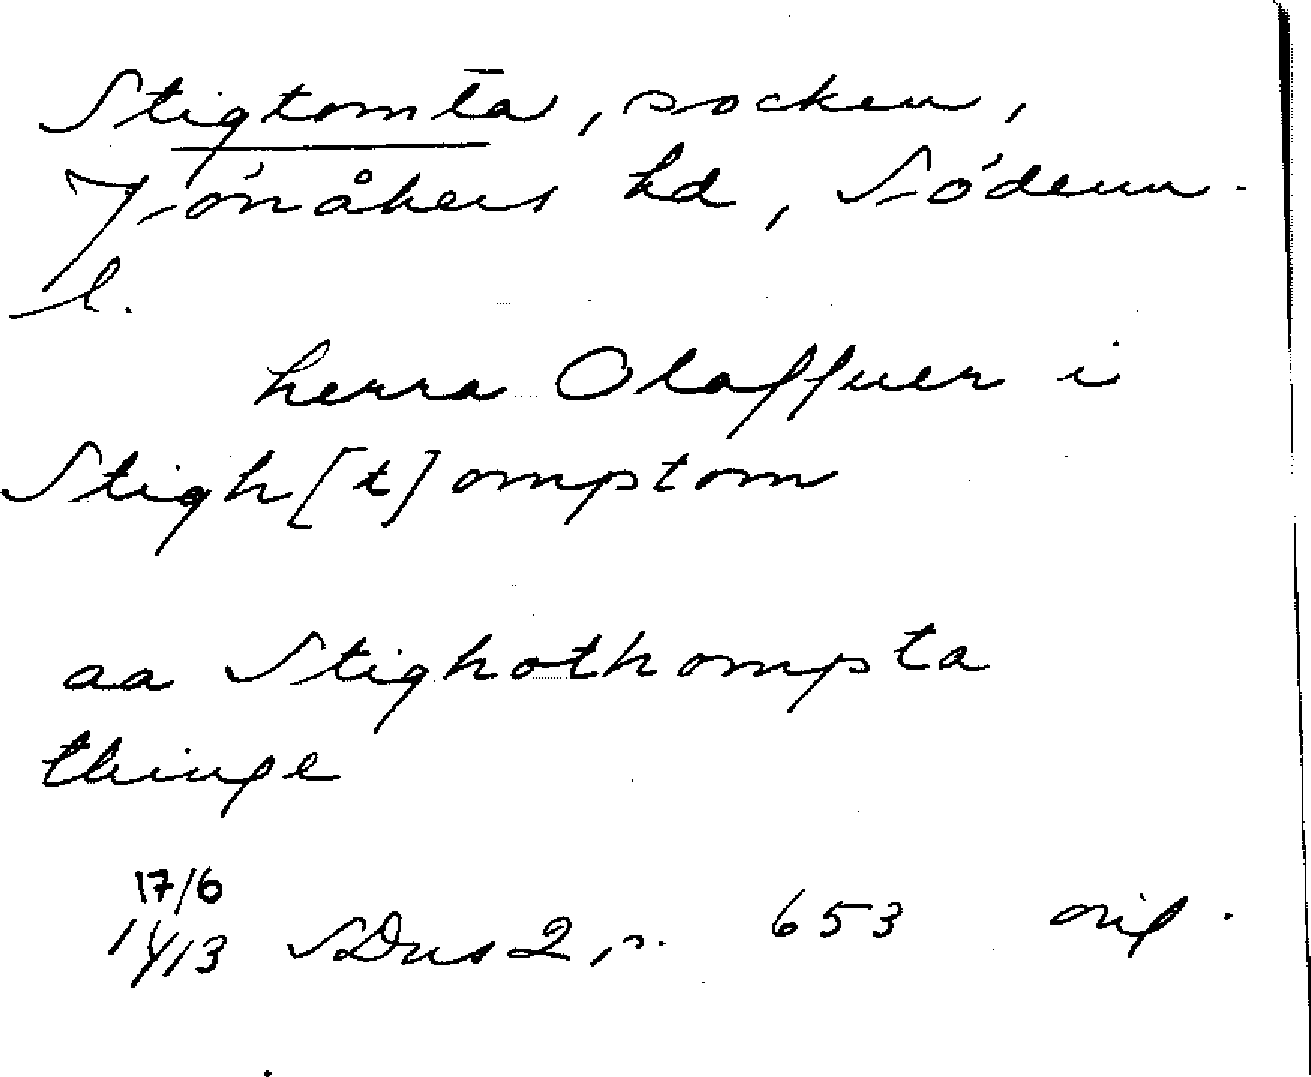 Stigtomta, socken,
Jönåkers hd, Söderm-
l.
herra Olaffuer i
Stigh[t]omptom
aa Stighothompta
thinge
17/6
1413 SDns 2, s. 653 orig.